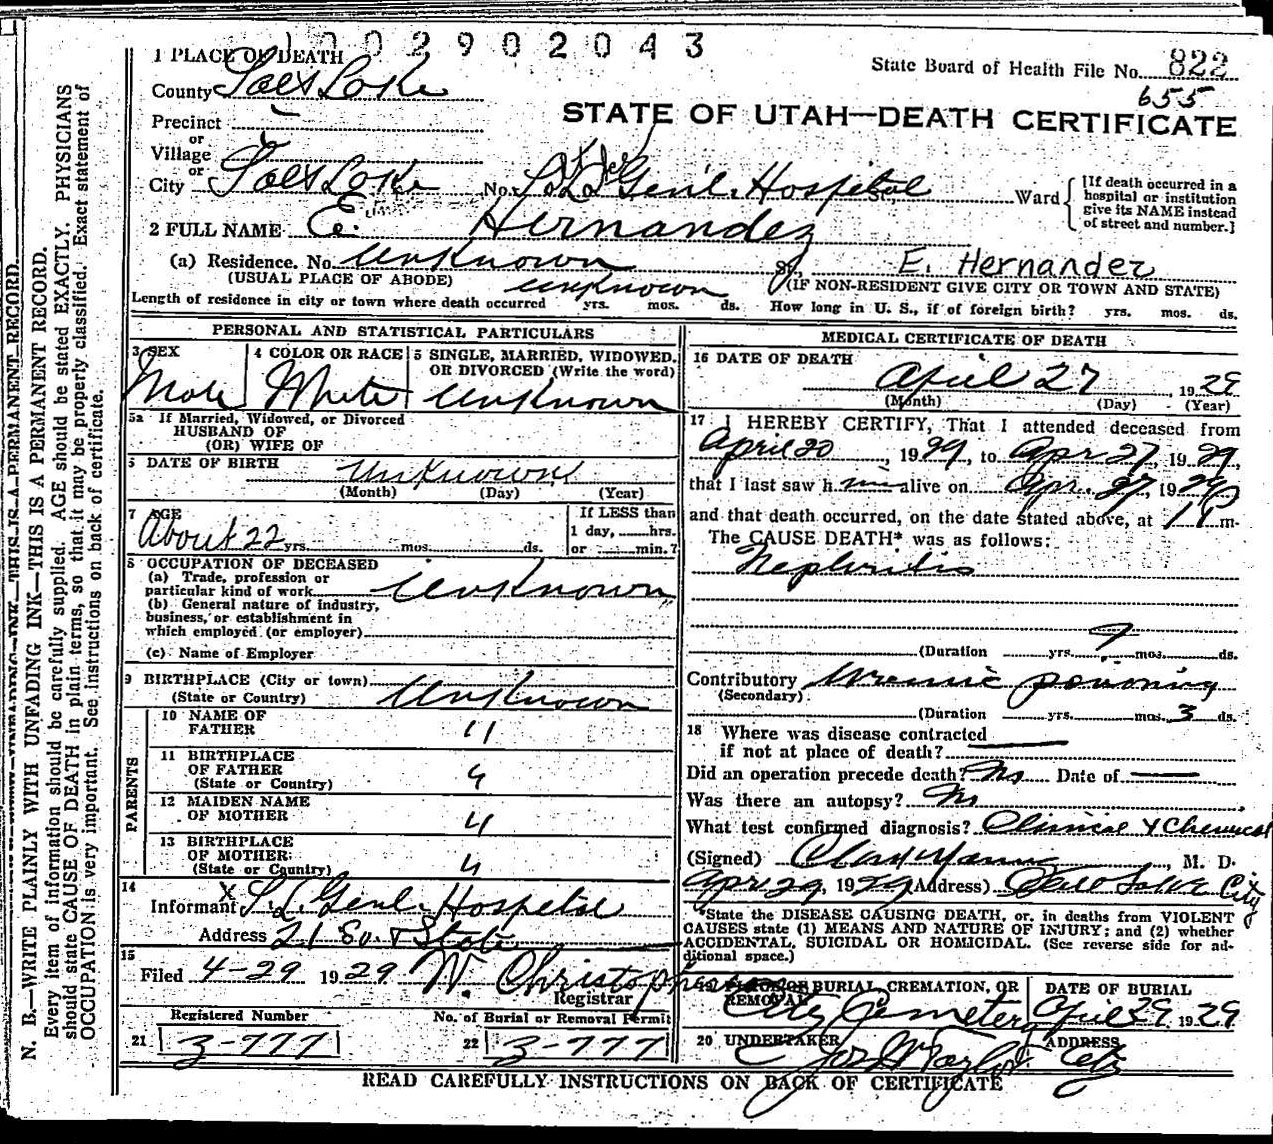 1002902043
1 PLACE OF DEATH
State Board of Health File No. 822
655
County Salt Lake
STATE OF UTAH—DEATH CERTIFICATE
Precinct
or
Village
or
City Salt Lake No. S. L. Gen'l. Hospital St., Ward
[If death occurred in a hospital or institution give its NAME instead of street and number.]
2 FULL NAME E. Hernandez
(a) Residence. No. Unknown St., E. Hernandez
(USUAL PLACE OF ABODE) (IF NON-RESIDENT GIVE CITY OR TOWN AND STATE)
Length of residence in city or town where death occurred unknown yrs. mos. ds. How long in U. S., if of foreign birth? yrs. mos. ds.
PERSONAL AND STATISTICAL PARTICULARS
3 SEX
Male
4 COLOR OR RACE
White
5 SINGLE, MARRIED, WIDOWED, OR DIVORCED (Write the word)
Unknown
5a If Married, Widowed, or Divorced
HUSBAND OF
(OR) WIFE OF
6 DATE OF BIRTH Unknown
(Month) (Day) (Year)
7 AGE
About 22 yrs. mos. ds.
If LESS than
1 day, hrs.
or min.?
8 OCCUPATION OF DECEASED
(a) Trade, profession or
particular kind of work Unknown
(b) General nature of industry,
business, or establishment in
which employed (or employer)
(c) Name of Employer
9 BIRTHPLACE (City or town)
(State or Country) Unknown
PARENTS
10 NAME OF
FATHER "
11 BIRTHPLACE
OF FATHER "
(State or Country)
12 MAIDEN NAME
OF MOTHER "
13 BIRTHPLACE
OF MOTHER: "
(State or Country)
14
Informant X S. L. Genl. Hospital
Address 21 So. & State
15
Filed 4-29 1929 W. Christopherson
Registrar
Registered Number No. of Burial or Removal Permit
21 3-777 22 3-777
MEDICAL CERTIFICATE OF DEATH
16 DATE OF DEATH
April 27, 1929
(Month) (Day) (Year)
17 I HEREBY CERTIFY, That I attended deceased from
April 20, 1929, to Apr 27, 1929,
that I last saw him alive on Apr. 27, 1929
and that death occurred, on the date stated above, at 1 P m.
The CAUSE DEATH* was as follows:
Nephritis
(Duration yrs. 9 mos. ds.
Contributory Uremic poisoning
(Secondary)
(Duration yrs. mos. 3 ds.
18 Where was disease contracted
if not at place of death?
Did an operation precede death? No Date of
Was there an autopsy? No
What test confirmed diagnosis? Clinical & Chemical
(Signed) M. D.
Apr 29, 1929 (Address) Salt Lake City
*State the DISEASE CAUSING DEATH, or, in deaths from VIOLENT
CAUSES state (1) MEANS AND NATURE OF INJURY; and (2) whether
ACCIDENTAL, SUICIDAL OR HOMICIDAL. (See reverse side for ad-
ditional space.)
19 PLACE OF BURIAL, CREMATION, OR
REMOVAL
City Cemetery
DATE OF BURIAL
April 29, 1929
20 UNDERTAKER
Jos Wm Taylor
ADDRESS
City
READ CAREFULLY INSTRUCTIONS ON BACK OF CERTIFICATE
N. B.—WRITE PLAINLY WITH UNFADING INK—THIS IS A PERMANENT RECORD.
Every item of information should be carefully supplied. AGE should be stated EXACTLY. PHYSICIANS
should state CAUSE OF DEATH in plain terms, so that it may be properly classified. Exact statement of
OCCUPATION is very important. See instructions on back of certificate.